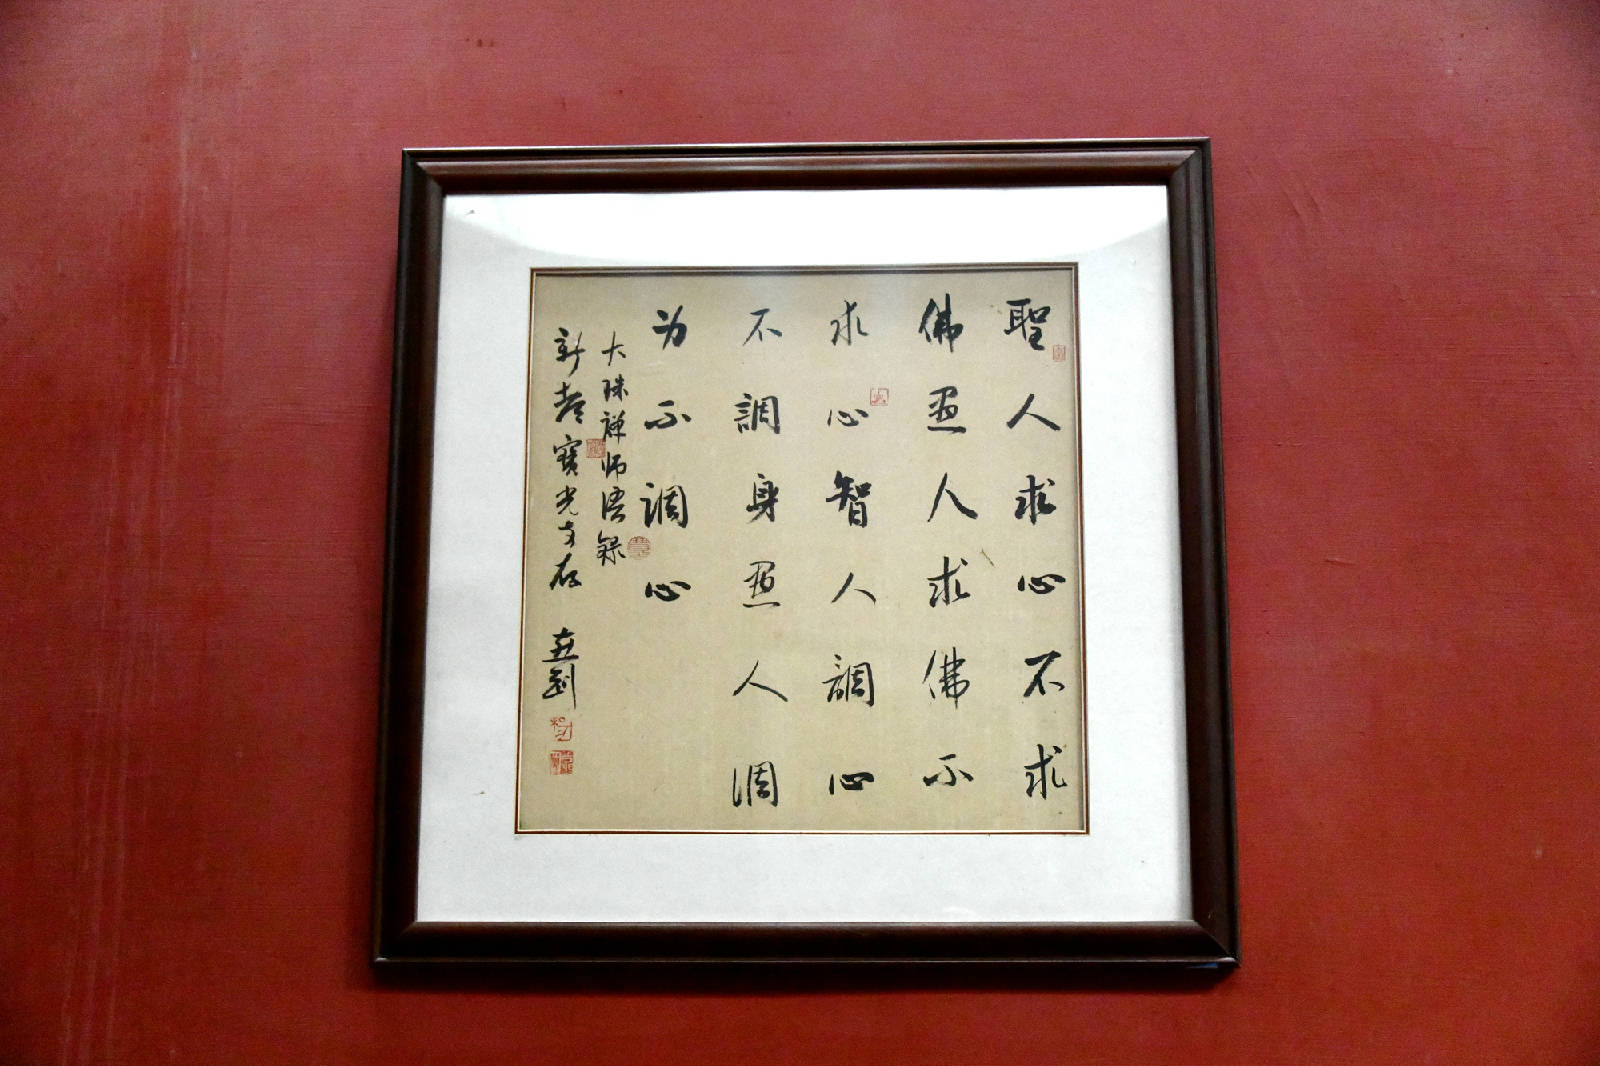 聖人求心不求
佛愚人求佛不
求心智人調心
不調身愚人調
为不調心
大珠禅师语録
新都寶光寺存